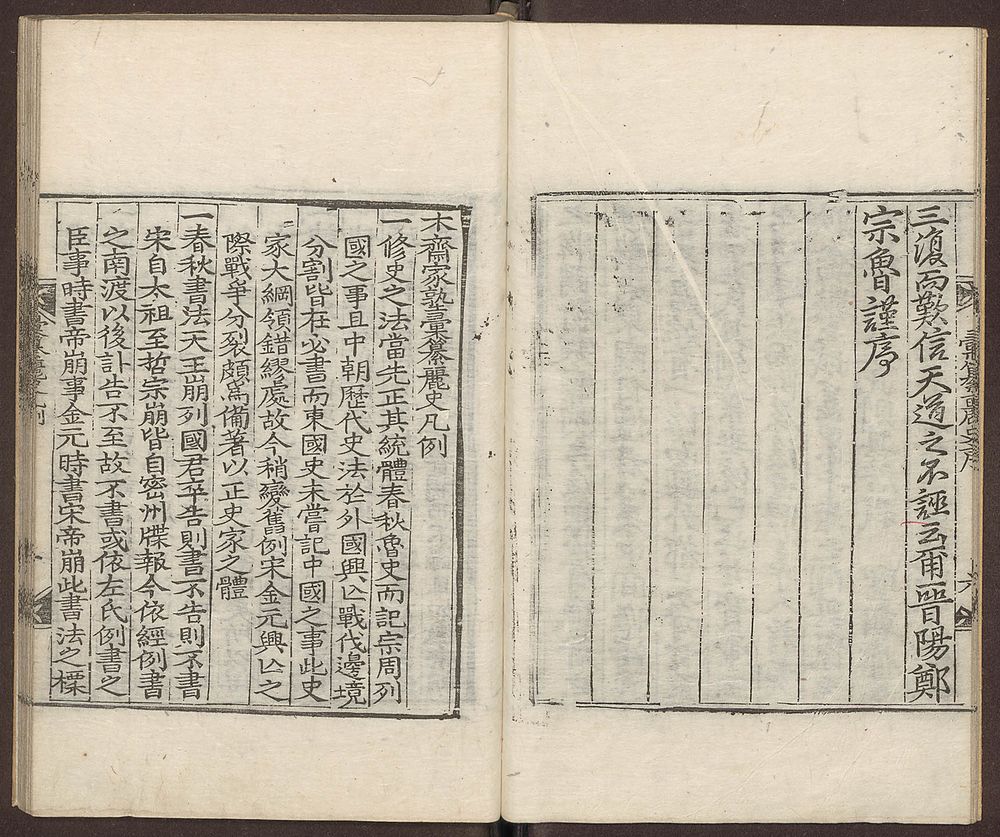 三復而歎信天道之不誣云甫晉陽鄭
宗魯謹序
彙纂麗史序
六
木齋家塾彙纂麗史凡例
一修史之法當先正其統體春秋魯史而記宗周列
國之事且中朝歷代史法於外國興亾戰伐邊境
分割皆在必書而東國史未嘗記中國之事此史
家大綱領錯繆處故今稍變舊例宋金元興亾之
際戰爭分裂頗爲備著以正史家之體
一春秋書法天王崩列國君卒告則書不告則不書
宋自太祖至哲宗崩皆自密州牒報今依經例書
之南渡以後訃告不至故不書或依左氏例書之
臣事時書帝崩事金元時書宋帝崩此書法之標